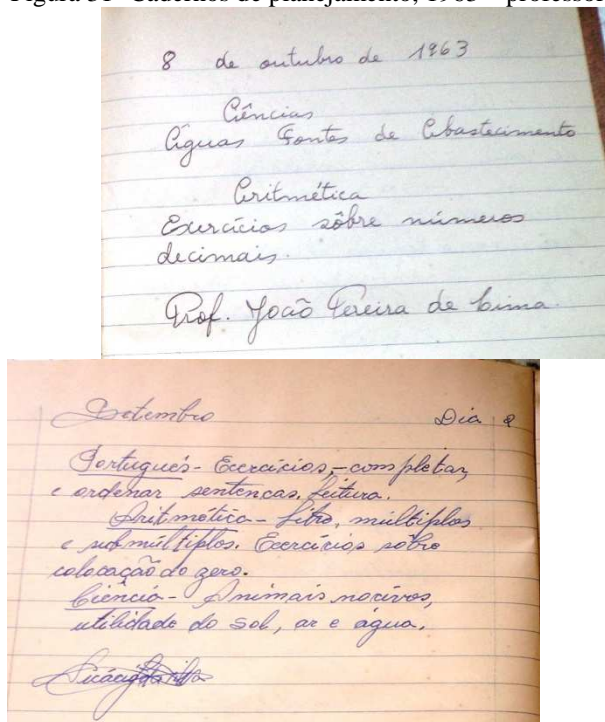 Figura 31- Cadernos de planejamento, 1963 – professor
8 de outubro de 1963
Ciências
Águas Fontes de Abastecimento
Aritmética
Exercícios sôbre números
decimais.
Prof. João Pereira de Lima.
Setembro Dia
Português - Exercícios - completar,
e ordenar sentenças. Leitura.
Aritmética - Litro, múltiplos
e submúltiplos. Exercícios sôbre
colocação do zero.
Ciência - Animais nocivos,
utilidade do sol, ar e água.